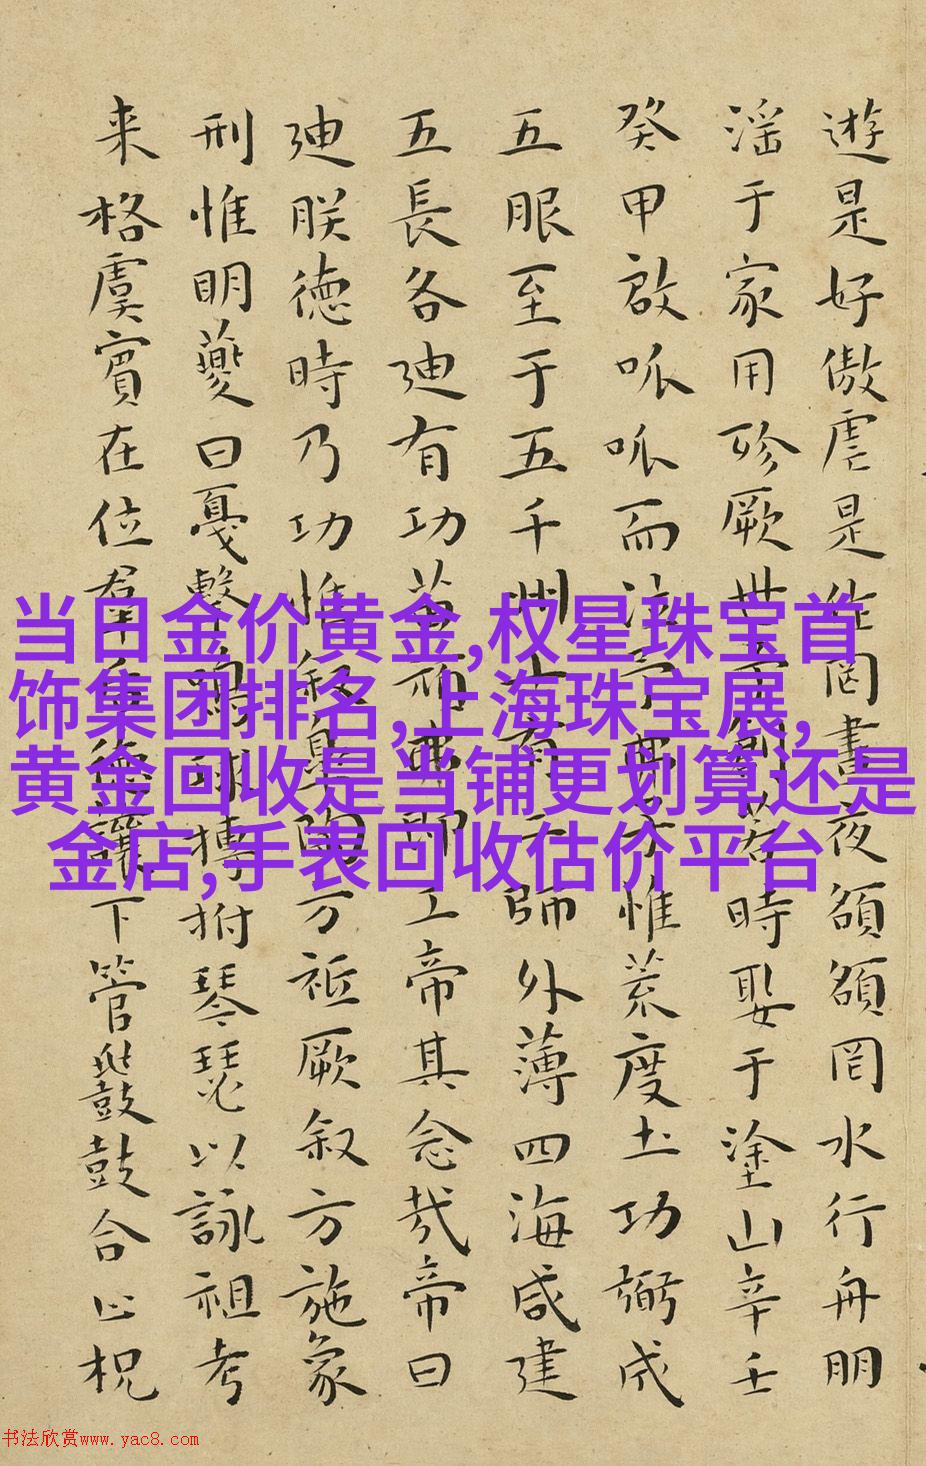 遊是好傲虐是作罔晝夜頟頟罔水行舟朋
淫于家用殄厥世予創若時娶于塗山辛壬
癸甲啟呱呱而泣予弗子惟荒度土功弼成
五服至于五千州十有二師外薄四海咸建
五長各迪有功苗頑弗即工帝其念哉帝曰
迪朕德時乃功惟叙皋陶方祗厥叙方施象
刑惟明夔曰戛擊鳴球搏拊琴瑟以詠祖考
来格虞賓在位羣后德讓下管鼗鼓合止柷
当日金价黄金,权星珠宝首
饰集团排名,上海珠宝展,
黄金回收是当铺更划算还是
金店,手表回收估价平台
书法欣赏www.yac8.com